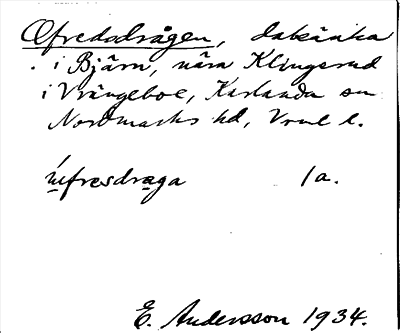 Øfredsdrågen, dalsänka
i Bjärn, nära Klingsrud
i Vrångeboe, Karlanda sn
Nordmarks hd, Vrml l.
úfresdraga 1a.
E. Andersson 1934.